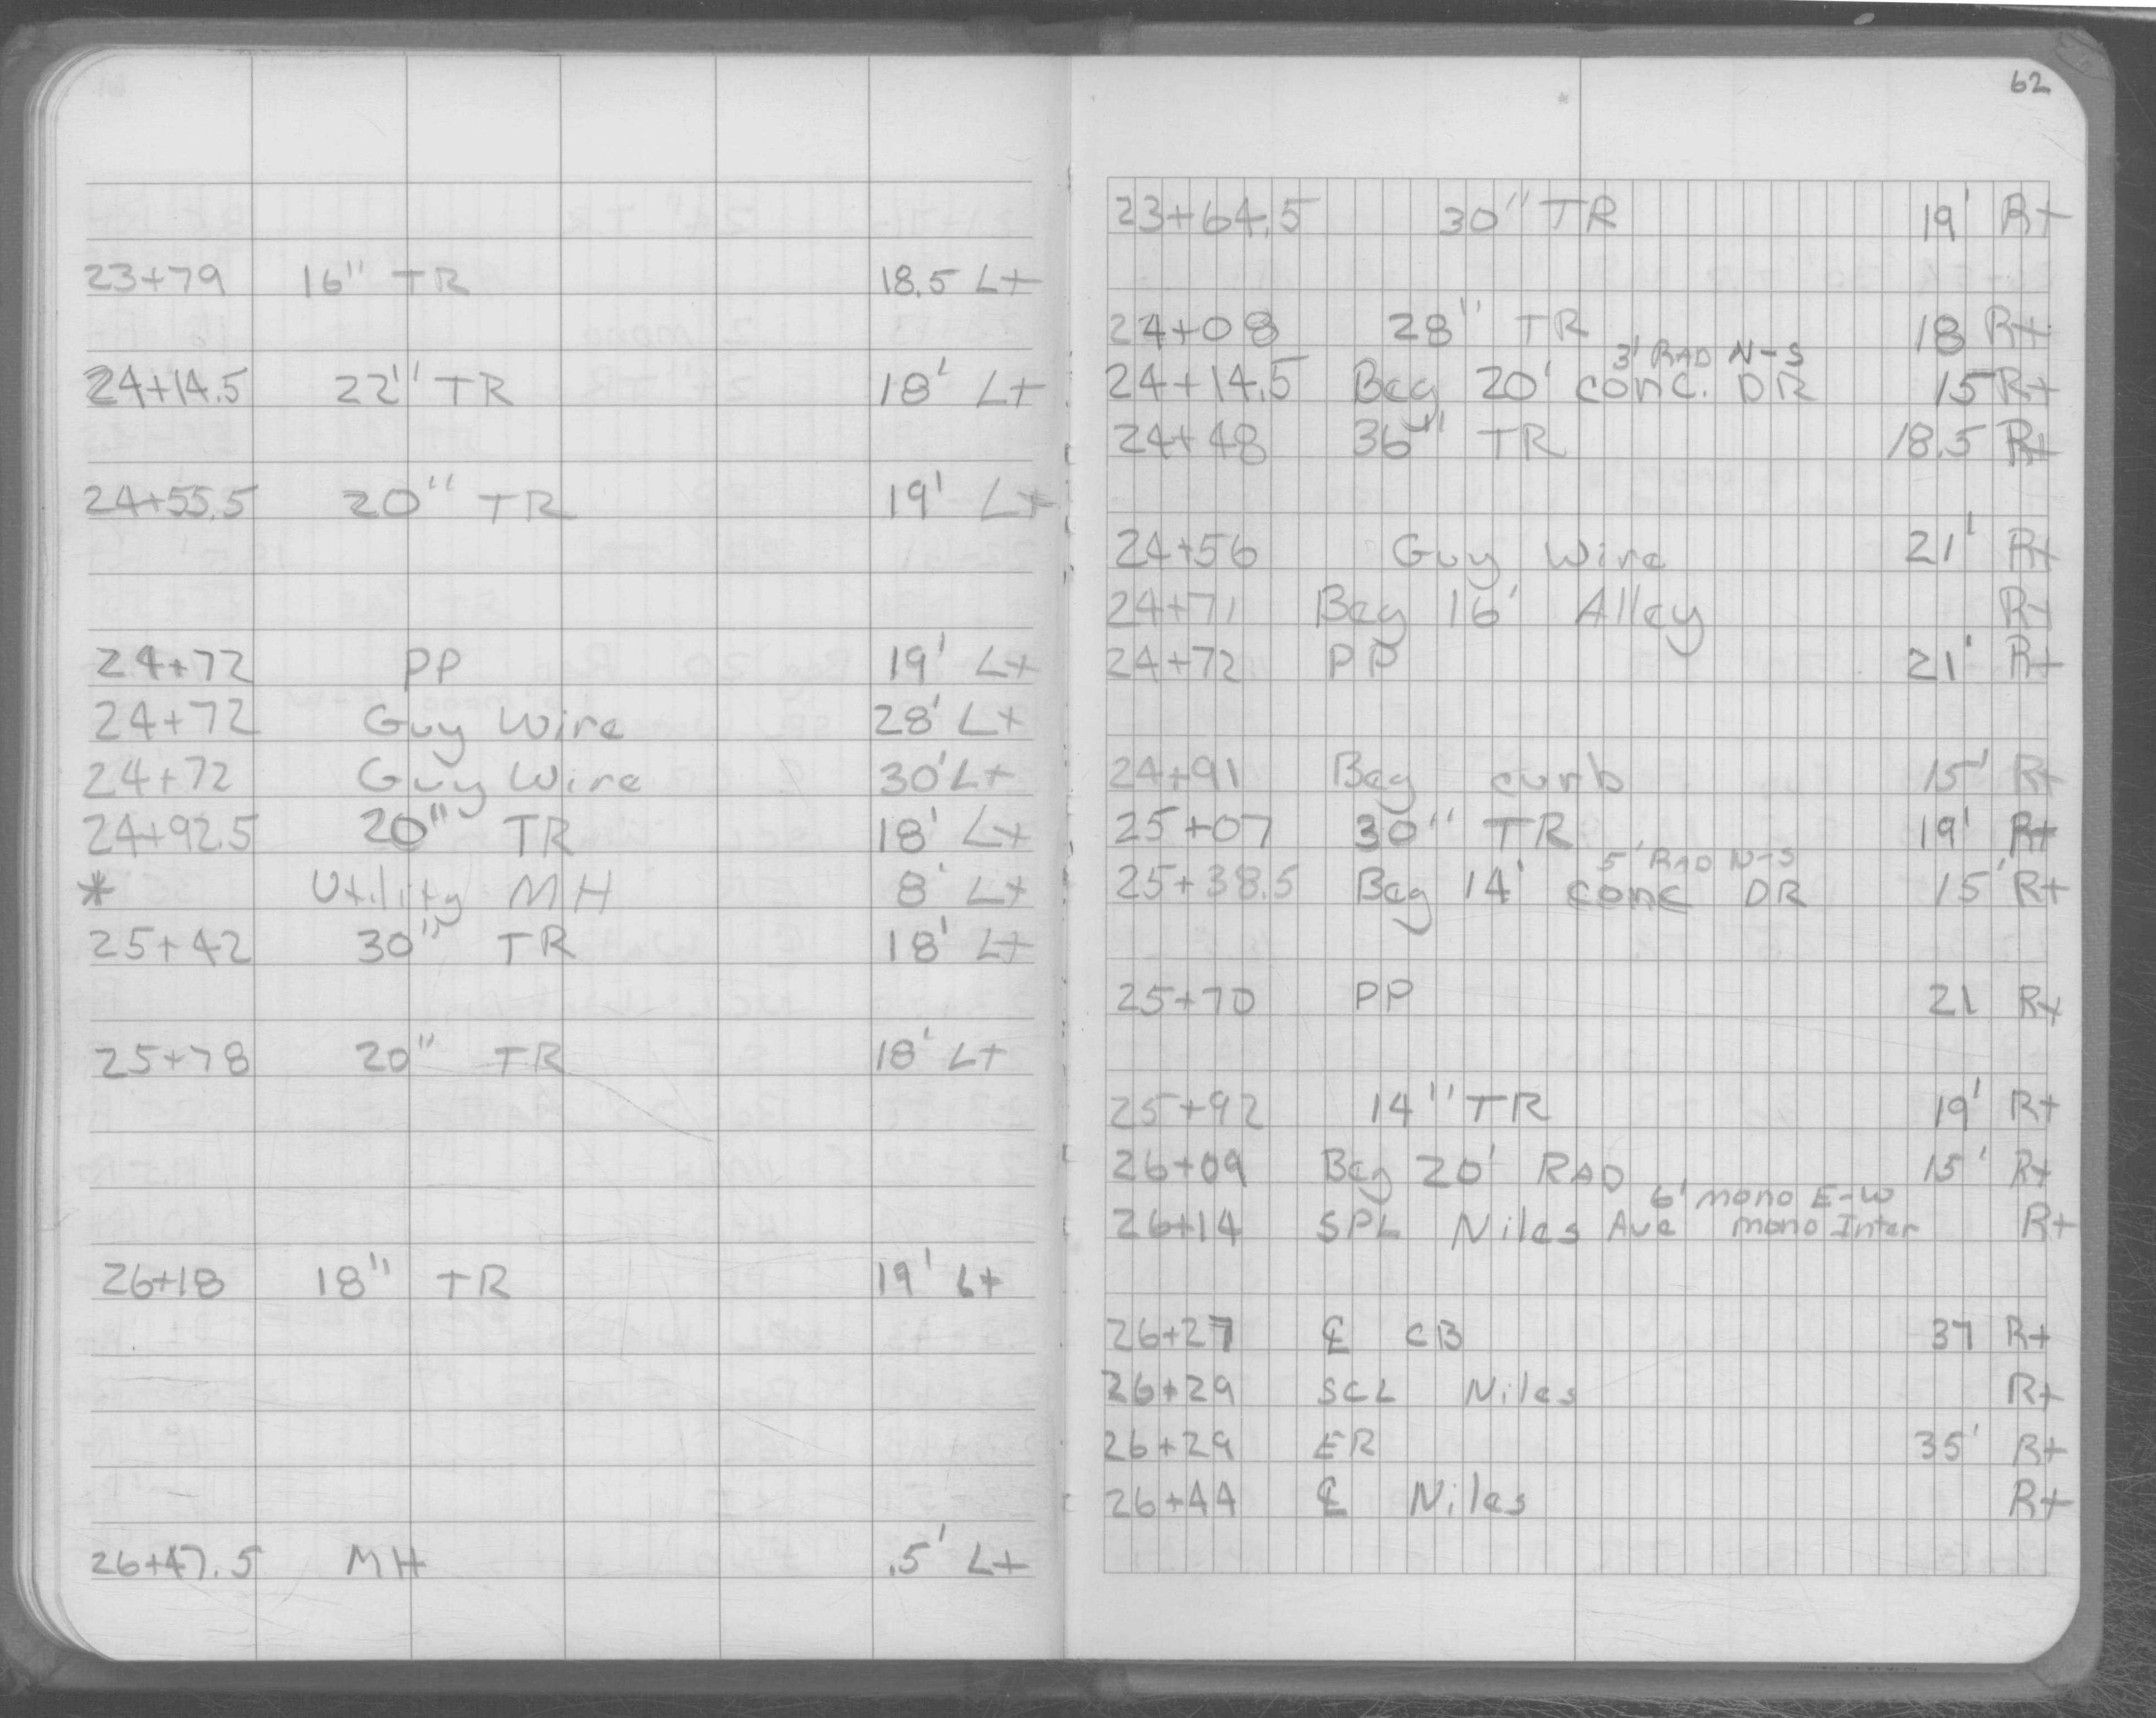 23+79 16" TR 18.5 Lt
24+14.5 22" TR 18' Lt
24+55.5 20" TR 19' Lt
24+72 PP 19' Lt
24+72 Guy Wire 28' Lt
24+72 Guy Wire 30' Lt
24+92.5 20" TR 18' Lt
* Utility MH 8' Lt
25+42 30" TR 18' Lt
25+78 20" TR 18' Lt
26+18 18" TR 19' Lt
26+47.5 MH .5' Lt
62
23+64.5 30" TR 19' Rt
24+08 28" TR 18 Rt
3' RAD N-S
24+14.5 Beg 20' conc. DR 15 Rt
24+48 36" TR 18.5 Rt
24+56 Guy Wire 21' Rt
24+71 Beg 16' Alley Rt
24+72 PP 21' Rt
24+91 Beg curb 15' Rt
25+07 30" TR 19' Rt
5' RAD N-S
25+38.5 Beg 14' conc DR 15' Rt
25+70 PP 21 Rt
25+92 14" TR 19' Rt
26+09 Beg 20' RAD 15' Rt
6' mono E-W
26+14 SPL Niles Ave mono Inter Rt
26+27 ℄ CB 37 Rt
26+29 SCL Niles Rt
26+29 ER 35' Rt
26+44 ℄ Niles Rt